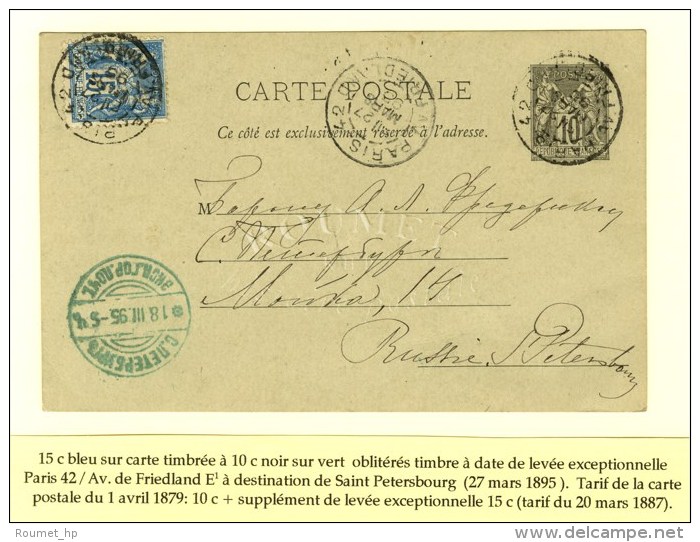 CARTE POSTALE
Ce côté est exclusivement réservé à l'adresse.
PARIS 42
27
MARS
10
M Барону А. Л. Фредериксу
С. Петербург
Мойка, 14
Russie. S. Petersbourg
С.ПЕТЕРБУРГЪ
18.III.95
ЭКСП.ГОР.ПОЧТ.
15 c bleu sur carte timbrée à 10 c noir sur vert oblitérés timbre à date de levée exceptionnelle
Paris 42 / Av. de Friedland E¹ à destination de Saint Petersbourg (27 mars 1895 ). Tarif de la carte
postale du 1 avril 1879: 10 c + supplément de levée exceptionnelle 15 c (tarif du 20 mars 1887).
Roumet_hp
delcampe.net